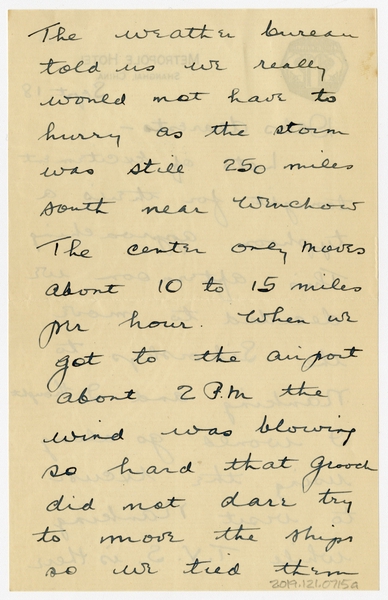 The weather bureau
told us we really
would not have to
hurry as the storm
was still 250 miles
south near Wenchow
The center only moves
about 10 to 15 miles
per hour. When we
got to the airport
about 2 P.M the
wind was blowing
so hard that Gooch
did not dare try
to move the ships
so we tied them
2019.121.0715a